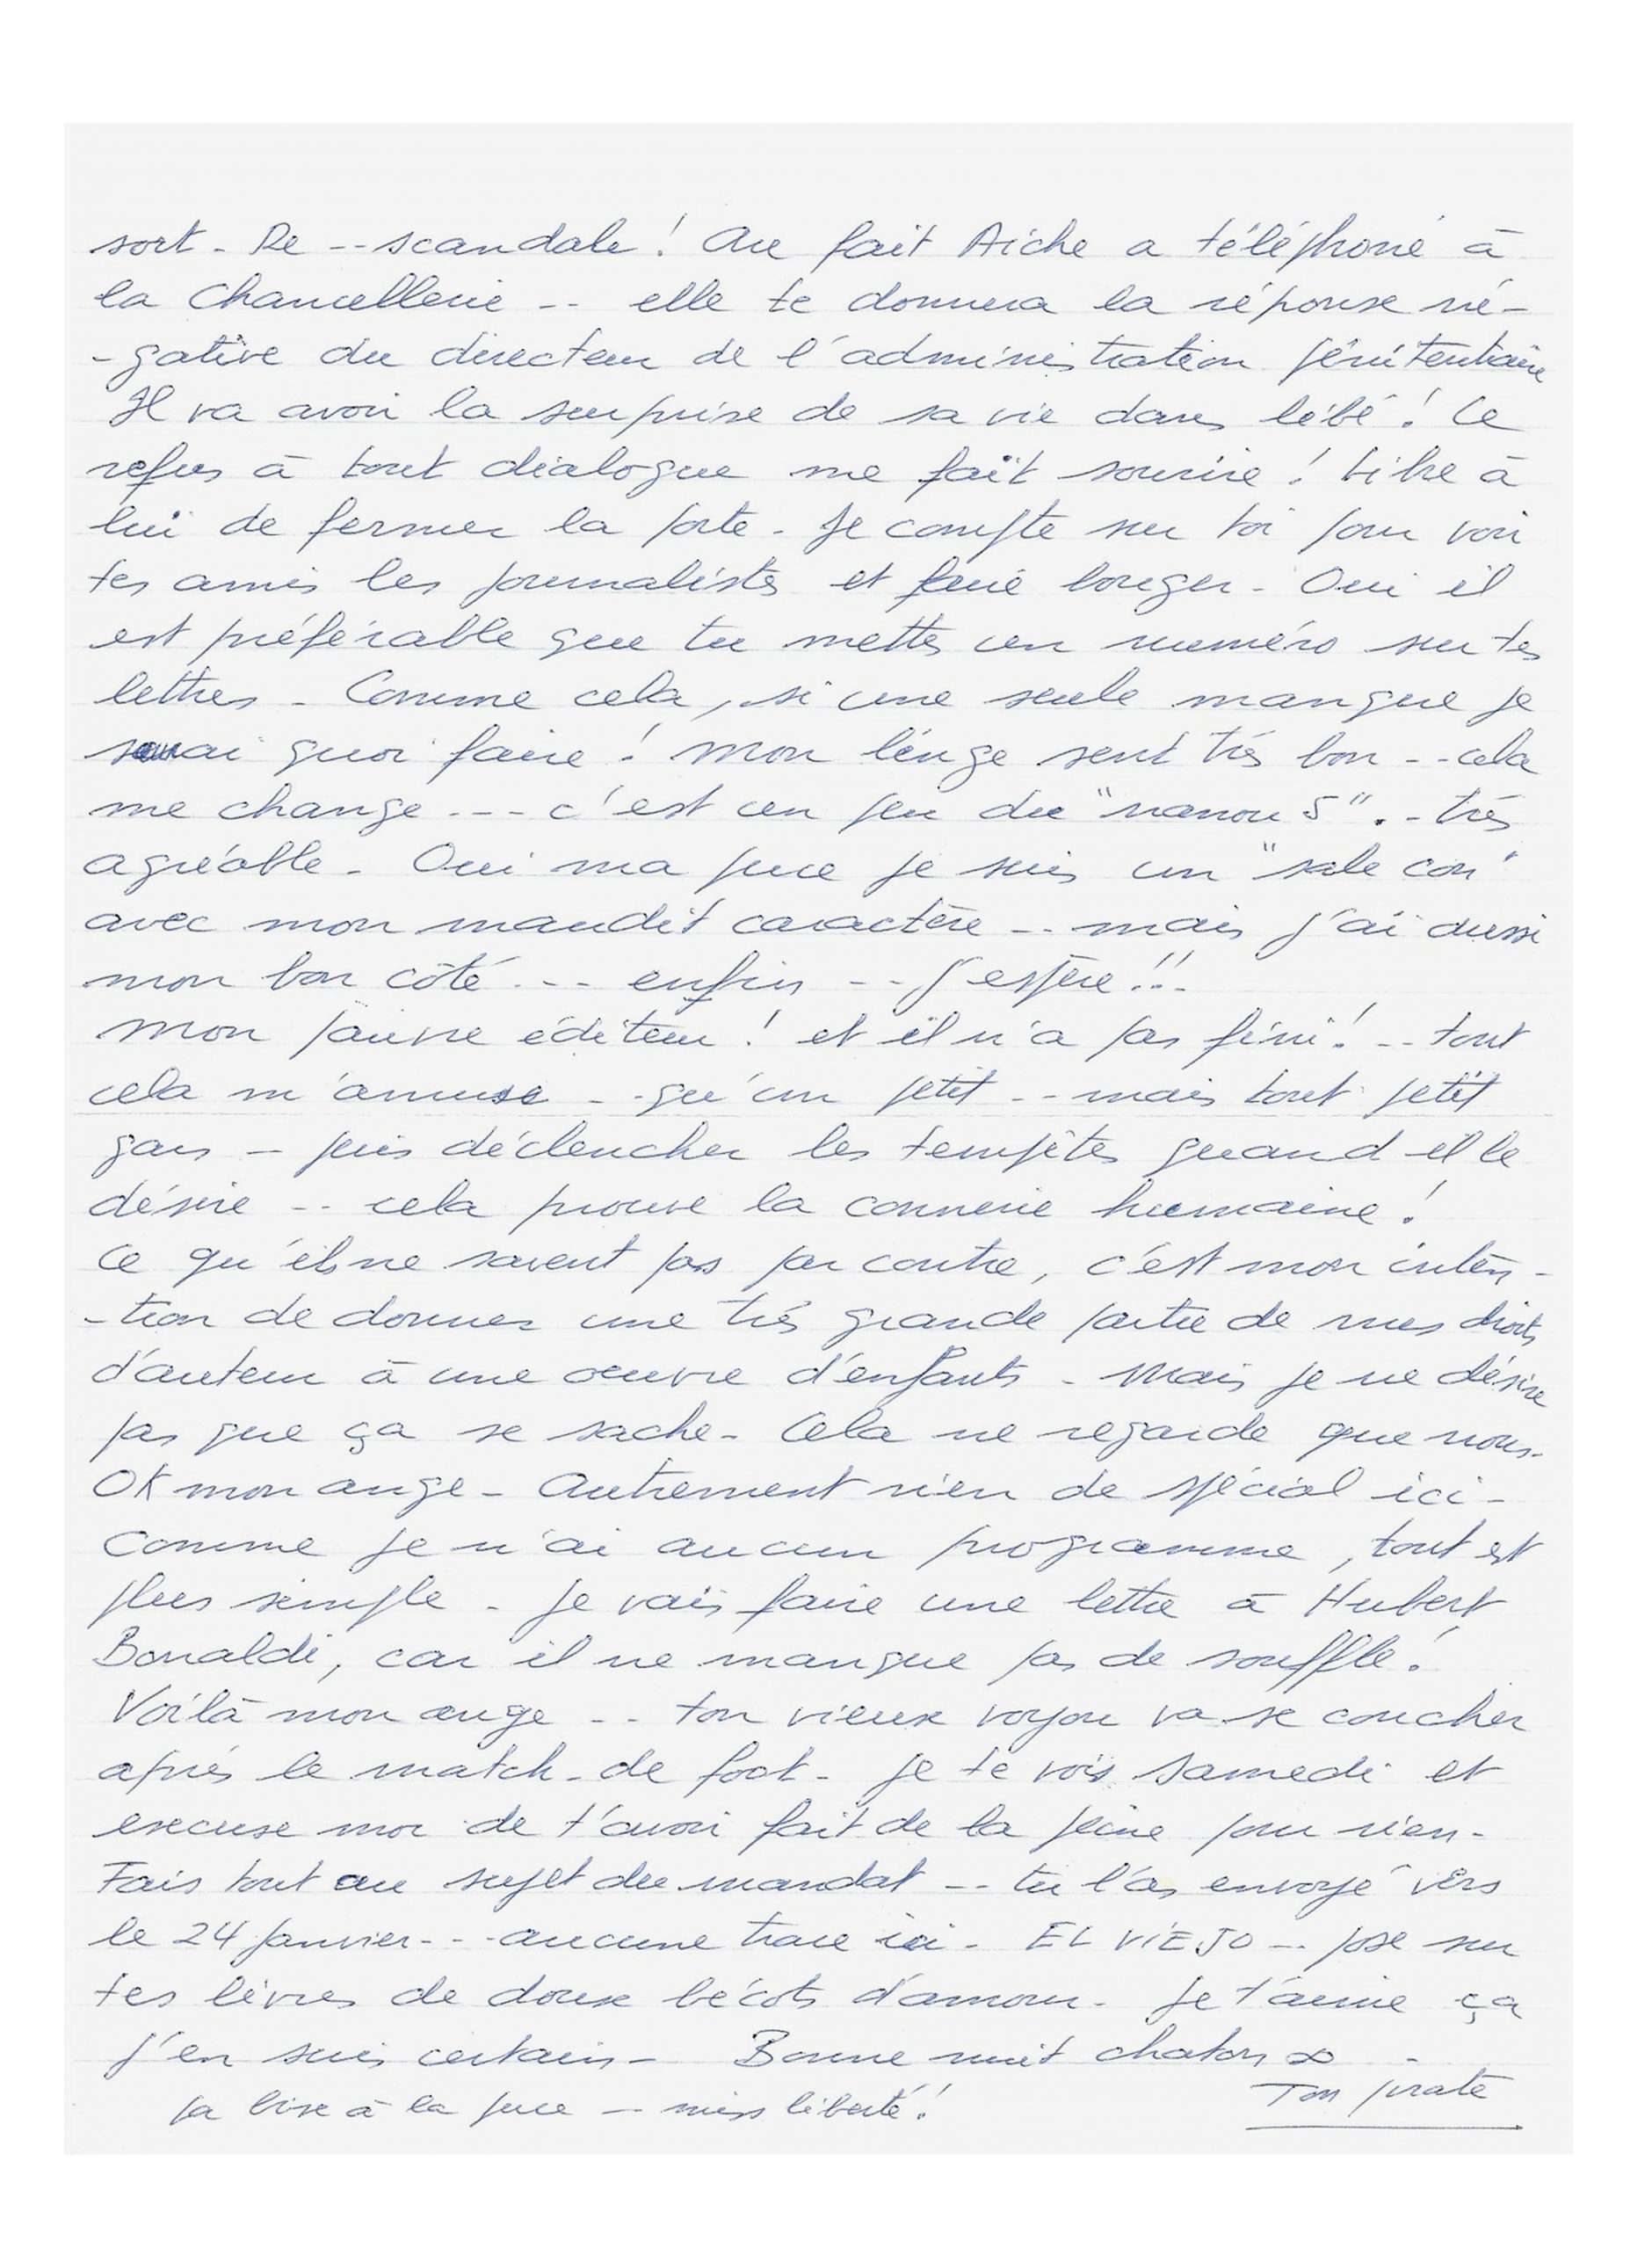 sort - Re -- scandale ! Au fait Aiche a téléphoné à
la Chancellerie -- elle te donnera la réponse né-
-gative du directeur de l'administration pénitentiaire
Il va avoir la surprise de sa vie dans l'ébé ! Ce
refus à tout dialogue me fait sourire ! Libre à
lui de fermer la porte - Je compte sur toi pour voir
tes amis les journalistes et faire bouger - Oui il
est préférable que tu mettes un numéro sur tes
lettres - Comme cela, si une seule manque je
saurai quoi faire ! Mon linge sent très bon -- cela
me change --- c'est un peu du "nanou 5" .- très
agréable - Oui ma puce je suis un "sale con"
avec mon maudit caractère -- mais j'ai aussi
mon bon côté --- enfin -- j'espère !!!
Mon pauvre éditeur ! et il n'a pas fini ! -- tout
cela m'amuse -- qu'un petit -- mais tout petit
gars - puis déclencher les tempêtes quand il le
désire -- cela prouve la connerie humaine !
Ce qu'ils ne savent pas par contre, c'est mon inten-
-tion de donner une très grande partie de mes droits
d'auteur à une oeuvre d'enfants - Mais je ne désire
pas que ça se sache - Cela ne regarde que nous -
OK mon ange - Autrement rien de spécial ici -
Comme je n'ai aucun programme, tout est
plus simple - Je vais faire une lettre à Hubert
Bonaldi, car il ne manque pas de souffle !
Voilà mon ange -- ton vieux voyou va se coucher
après le match de foot - Je te vois samedi et
excuse moi de t'avoir fait de la peine pour rien -
Fais tout au sujet du mandat -- tu l'as envoyé vers
le 24 janvier --- aucune trace ici - EL VIEJO -- pose sur
tes lèvres de doux bécots d'amour - Je t'aime ça
j'en suis certain - Bonne nuit chaton ∞ -
la bise à la puce - miss liberté ! Ton pirate